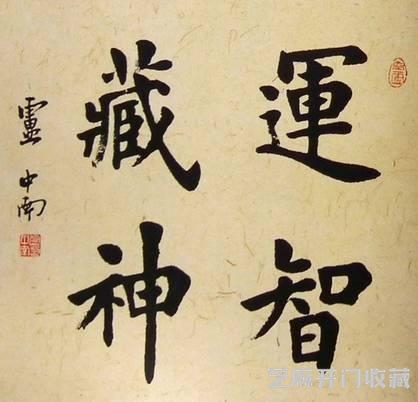 運智
藏神
盧中南
芝麻开门收藏